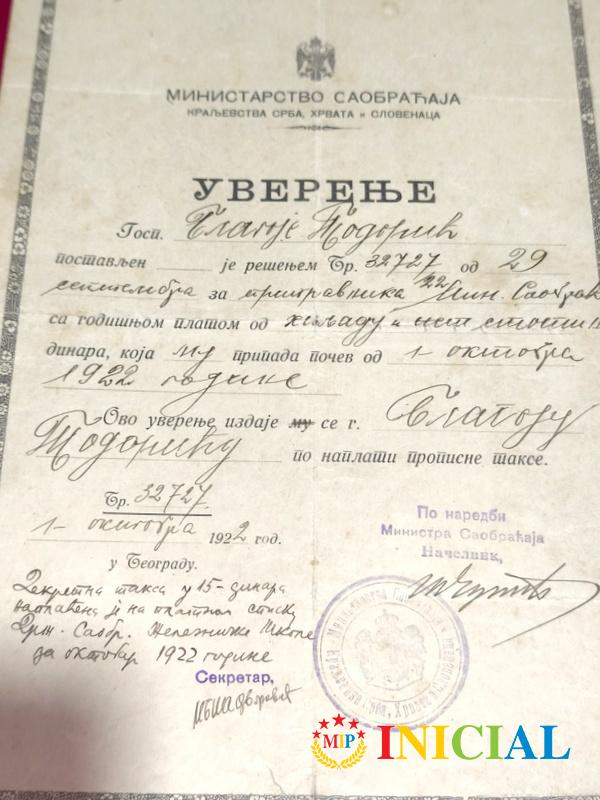 МИНИСТАРСТВО САОБРАЋАЈА
КРАЉЕВСТВА СРБА, ХРВАТА и СЛОВЕНАЦА
УВЕРЕЊЕ
Госп. Благоје Тодорић
постављен је решењем Бр. 32727 од 29
септембра 22 за приправника Мин. Саобраћ
са годишњом платом од хиљаду и шест стоти
динара, која му припада почев од 1 октобра
1922 године
Ово уверење издаје му се г. Благоју
Тодорићу по наплати прописне таксе.
Бр. 32727
1 октобра 1922 год.
у Београду.
По наредби
Министра Саобраћаја
Начелник,
Декретна такса у 15- динара
наплаћена је на платном списку
Држ. Саобр. Железничке Школе
за октобар 1922 године
Секретар,
MIP INICIAL